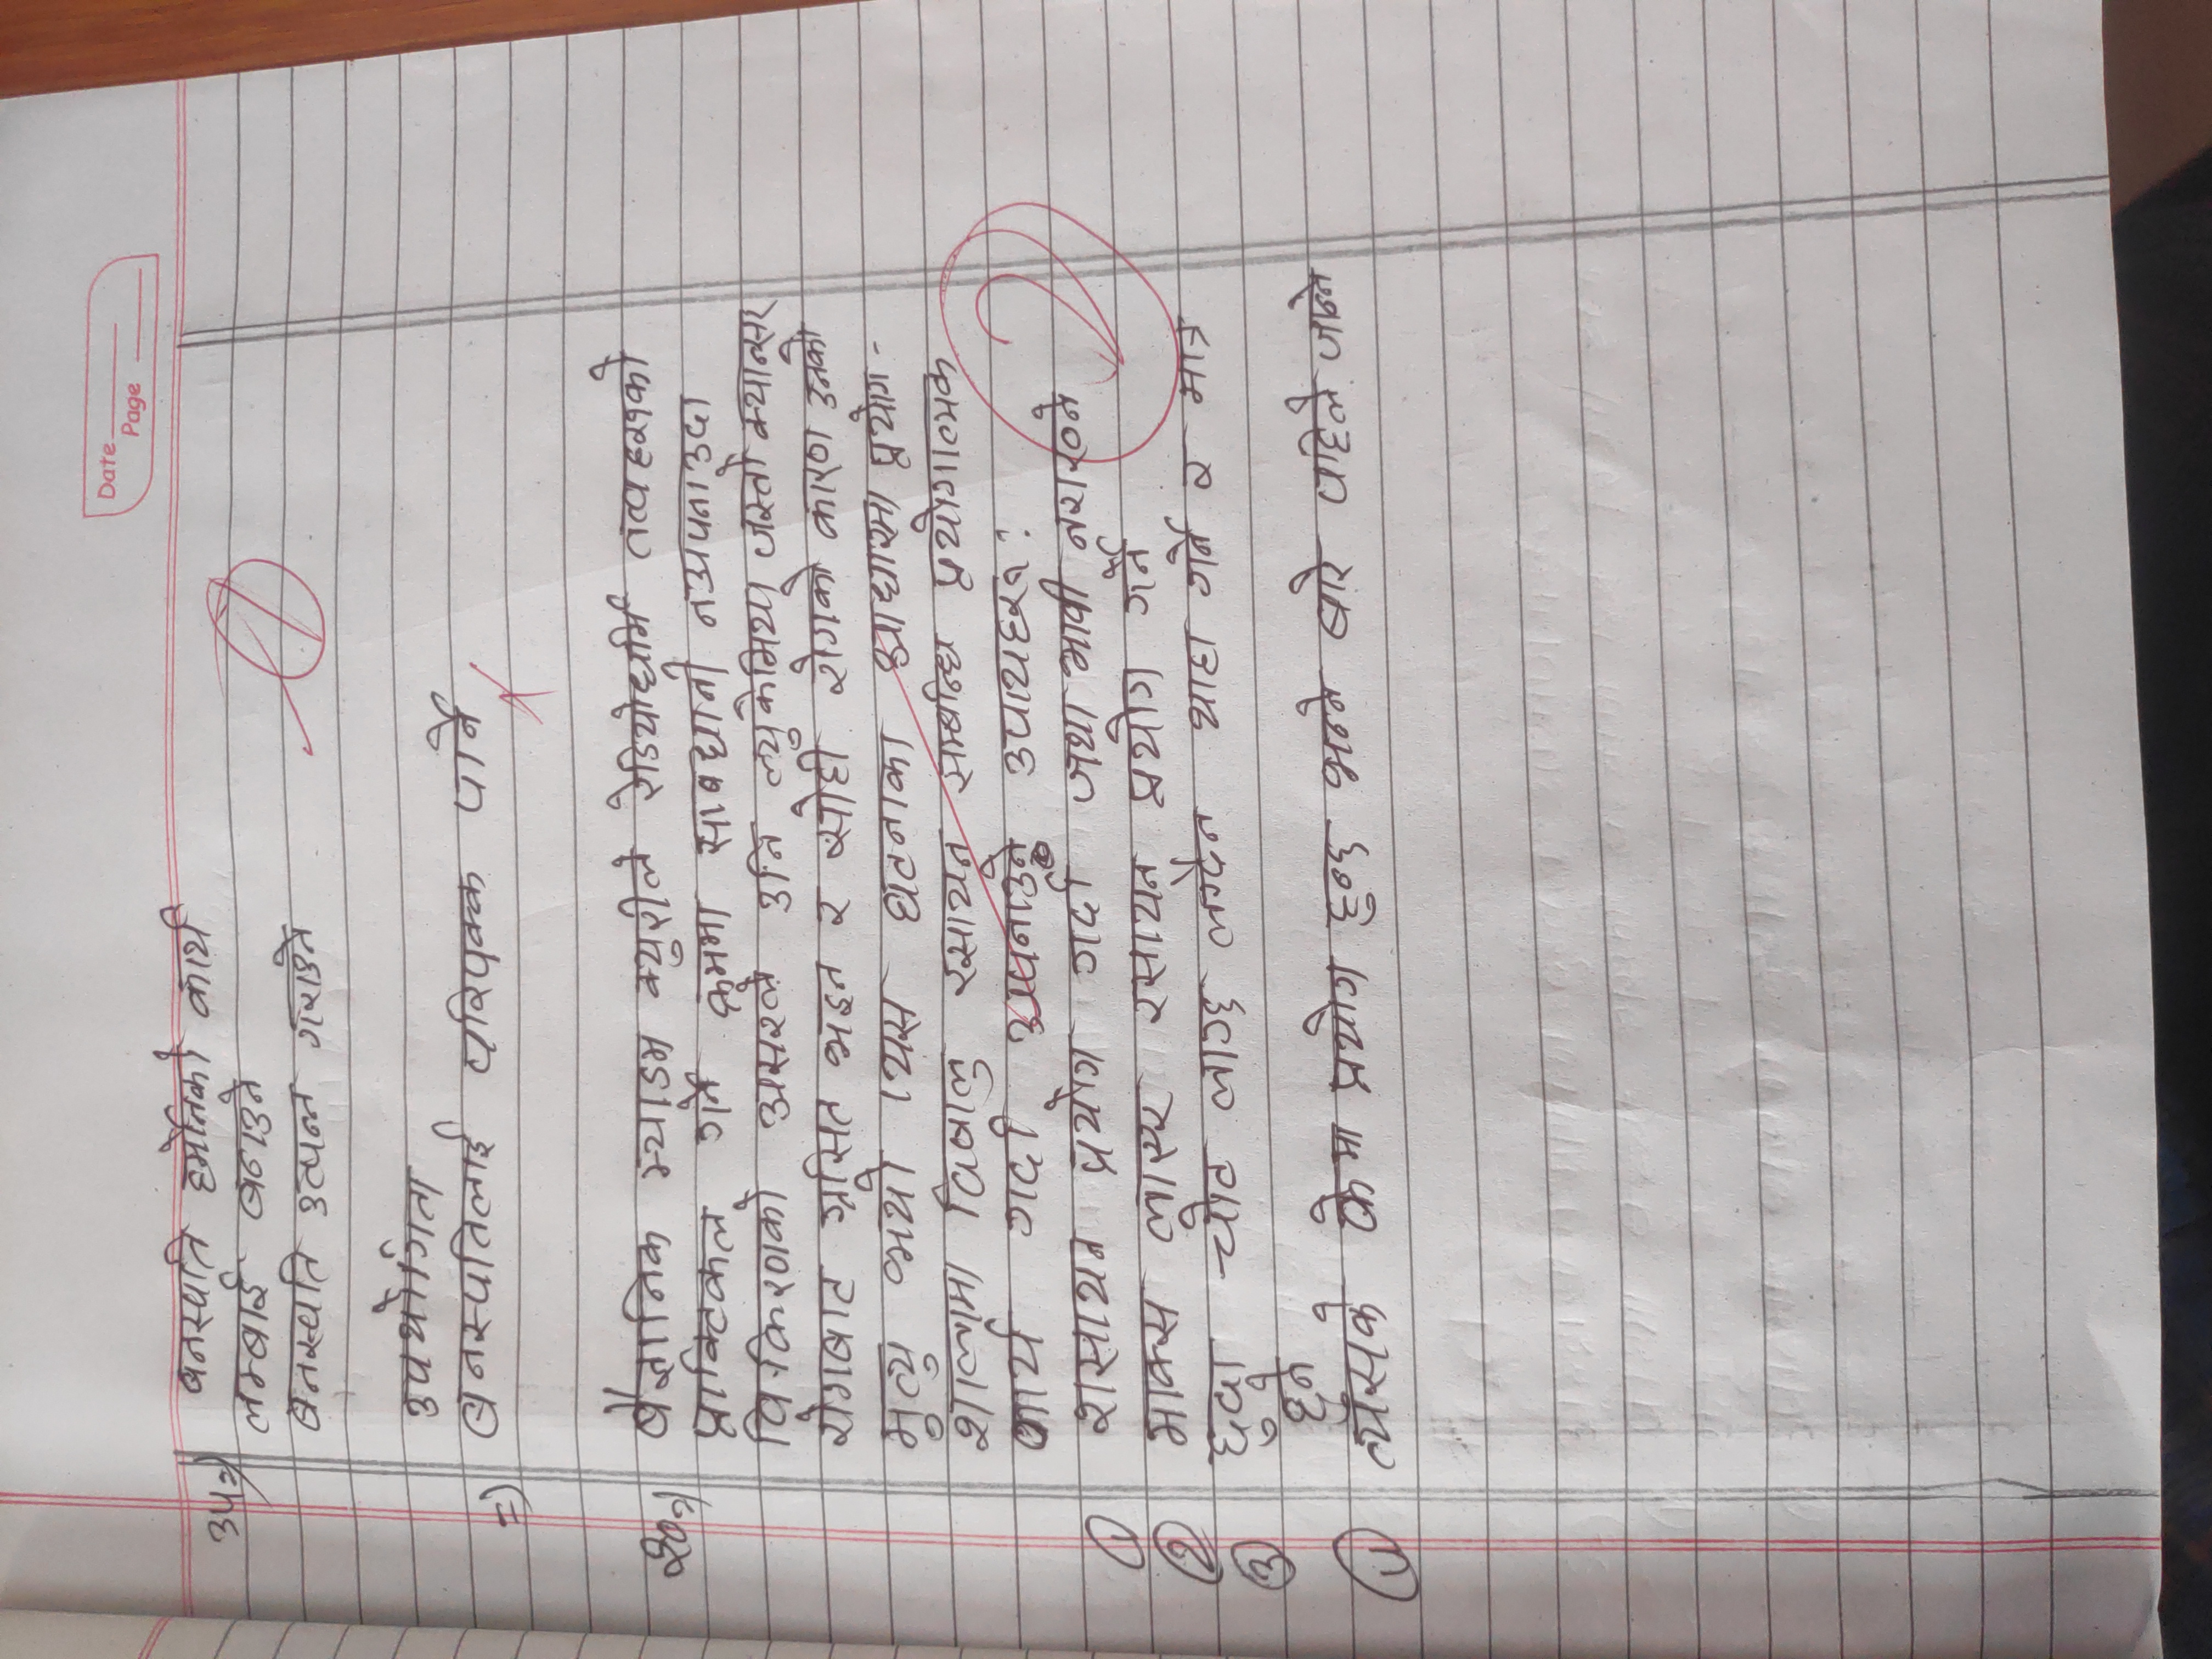 Date
Page
बनस्पति हर्मोनको कार्य
३५⇒
लम्बाई बनाउने
बनस्पति उत्पन्न गराउने
उपयोगिता
=) बनस्पतिलाई परिपक्क पार्ने
बैज्ञानिक म्याडम क्युरीले रेडियोधर्मि तत्वहरुको
प्राक्टिकल गर्ने क्रममा साबधानी नअपनाउदा
विकिरणको असरले उनि ल्युकेमिया जस्तो क्यान्सर
रोगबाट ग्रसित भइन र सोही रोगको कारण उनको
मुत्यु भयो ।यस घटनाका आधारमा प्रयोग-
शालामा विषालु रसायन सम्बन्धि प्रयोगात्मक
कार्य गर्दा अपनाउने उपायहरु?
① रासायन प्रयोग गर्दा जथा भावी नराख्ने
② माक्स लाएर रसायन प्रयोग गर्ने
③ छुदा चोट लाग्छ लग्दैन थाहा गर्ने र मात्र
छुने
त्यसके केमा प्रयोग हुन्छ भन्ने बारे पहिले जान्ने